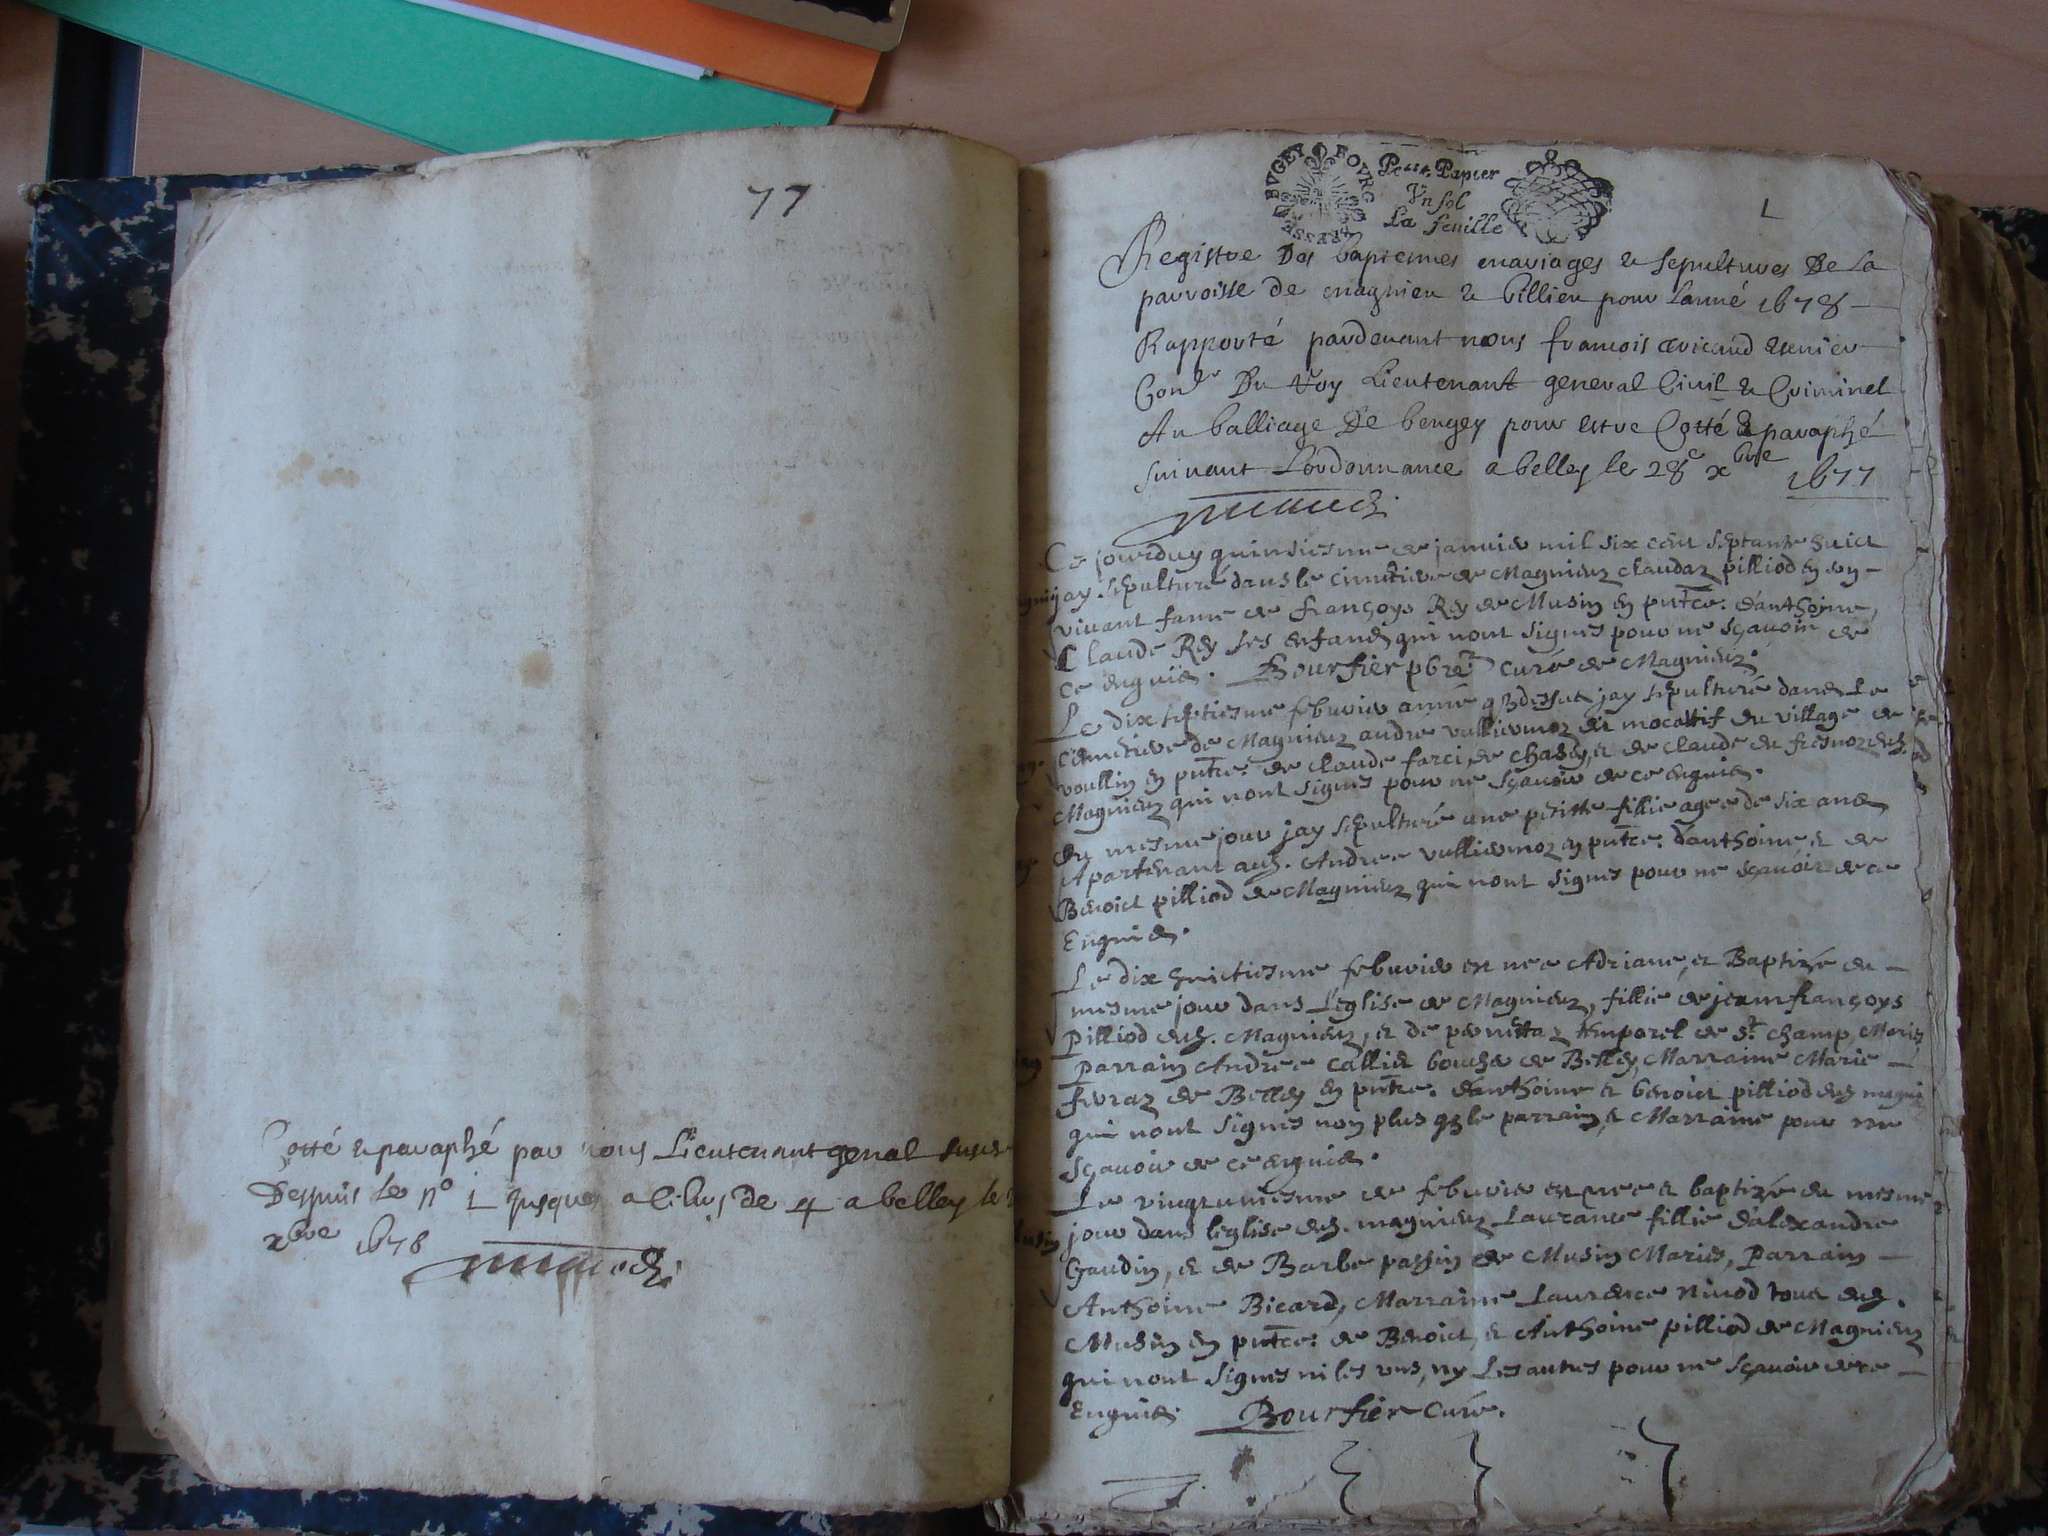 77
Cotté & paraphé par nous Lieutenant genal
Despuis le n° 1 jusques a celuy de 4 a belley le
xbre 1678
BVGEY BOVRG BRESSE
Petit Papier
Vn sol
La feuille
1
Registre Des baptemes mariages & sepultures De la
parroisse de magnieu & billieu pour lanné 1678
Rapporté pardevant nous francois
Con.er Du Roy Lieutenant general Civil & Criminel
Au balliage De beugey pour estre Cotté & paraphé
suivant Lordonnance a belley le 28e xbre 1677
Ce jourduy quinsiesme de janvier mil six cent septante huict
jay sepulturé dans le cimetiere de Magnieuz claudaz pilliod en son
vivant fame de françoys Rey de Musin en pntce: d'anthoine,
Claude Rey ses enfans qui nont signes pour ne sçavoir de
ce enquis. Bourfier pbre curé de Magnieuz.
Le dix septiesme febvrier année q dessus jay sepulturé dans Le
cimetiere de Magnieuz andre vulliermoz du village de
voullin en pntce: de claude farci de chasey, et de claude du fresnoz dud.
Magnieuz qui nont signes pour ne sçavoir de ce enquis.
du mesme jour jay sepulturé une petitte fillie agee de six ans
Apartenant aud. Andree vulliermoz en pntce: d'anthoine et de
Benoict pilliod de Magnieuz qui nont signes pour ne sçavoir de ce
Enquis.
Le dix huictiesme febvrier est nee Adriane, et Baptizée du
mesme jour dans Leglise de Magnieuz, fillie de jeanfrançoys
Pilliod dud. Magnieuz, et de pernettaz temporel de St. Champ, Maries
parrain Andree callier de Belley, Marraine Marie
fevraz de Belley en pntce. d'anthoine et benoict pilliod dud magnieu
qui nont signes non plus q le parrain, & Marraine pour ne
Sçavoir de ce enquis.
Le vingtuniesme de febvrier est nee et baptizée du mesme
jour dans leglise dud. magnieuz Laurance fillie d'alexandre
Gaudin, et de Barbe passin de Musin Maries, Parrain
Anthoine Bicard, Marraine Laurence Nivod tous dud.
Musin en pntce: de Benoict, et Anthoine pilliod de Magnieuz
qui nont signes ni les uns, ny Les autres pour ne sçavoir de ce
Enquis. Bourfier Curé.